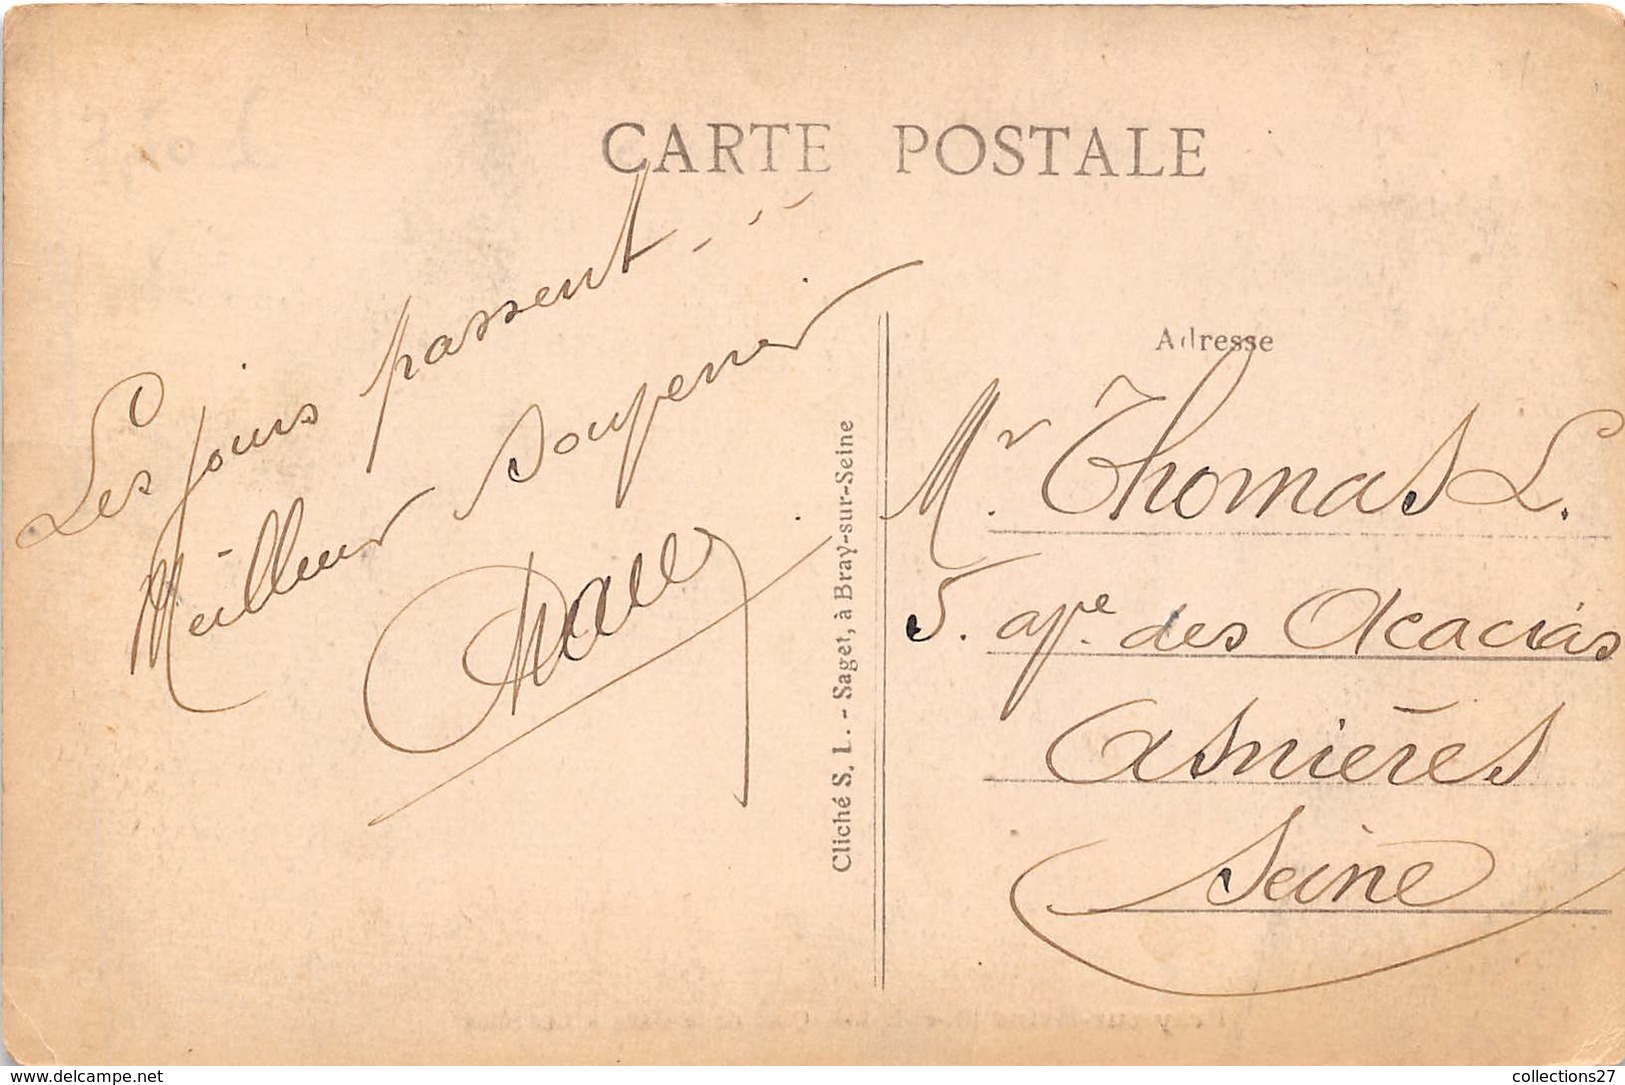 CARTE POSTALE
Les jours passent...
Meilleur souvenir
Cliché S. L. - Saget, à Bray-sur-Seine
Adresse
Mr. Thomas L.
5. ave. des Acacias
Asnières
Seine
www.delcampe.net
collections27